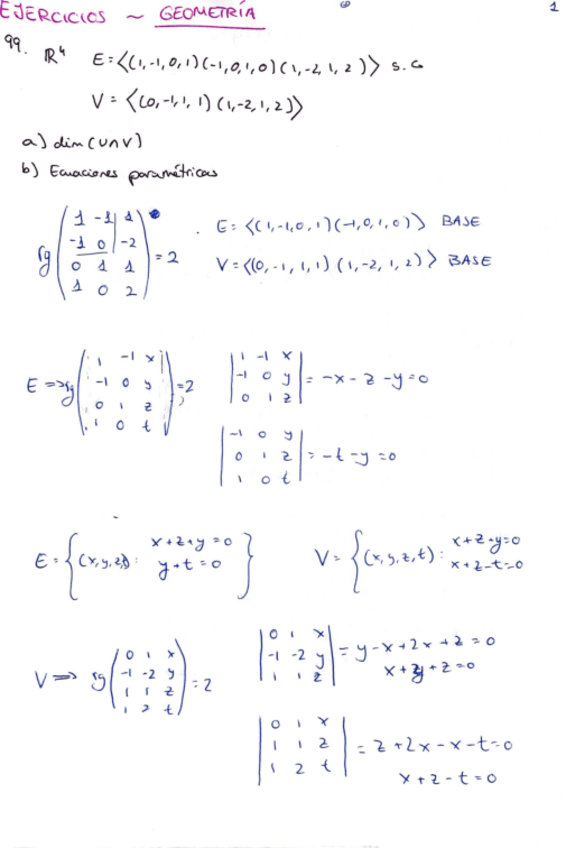 EJERCICIOS ~ GEOMETRÍA 1
99. ℝ⁴ E=<(1,-1,0,1)(-1,0,1,0)(1,-2,1,2)> s.G
V=<(0,-1,1,1)(1,-2,1,2)>
a) dim(U∩V)
b) Ecuaciones paramétricas
rg ( 1 -1 1 ; -1 0 -2 ; 0 1 1 ; 1 0 2 ) = 2
E=<(1,-1,0,1)(-1,0,1,0)> BASE
V=<(0,-1,1,1)(1,-2,1,2)> BASE
E => rg ( 1 -1 x ; -1 0 y ; 0 1 z ; 1 0 t ) = 2;
| 1 -1 x ; -1 0 y ; 0 1 z | = -x-z-y=0
| -1 0 y ; 0 1 z ; 1 0 t | = -t-y=0
E = { (x,y,z,t): x+z+y=0 y+t=0 }
V = { (x,y,z,t): x+z+y=0 x+z-t=0
V => rg ( 0 1 x ; -1 -2 y ; 1 1 z ; 1 2 t ) = 2
| 0 1 x ; -1 -2 y ; 1 1 z | = y-x+2x+z=0
x+y+z=0
| 0 1 x ; 1 1 z ; 1 2 t | = z+2x-x-t=0
x+z-t=0